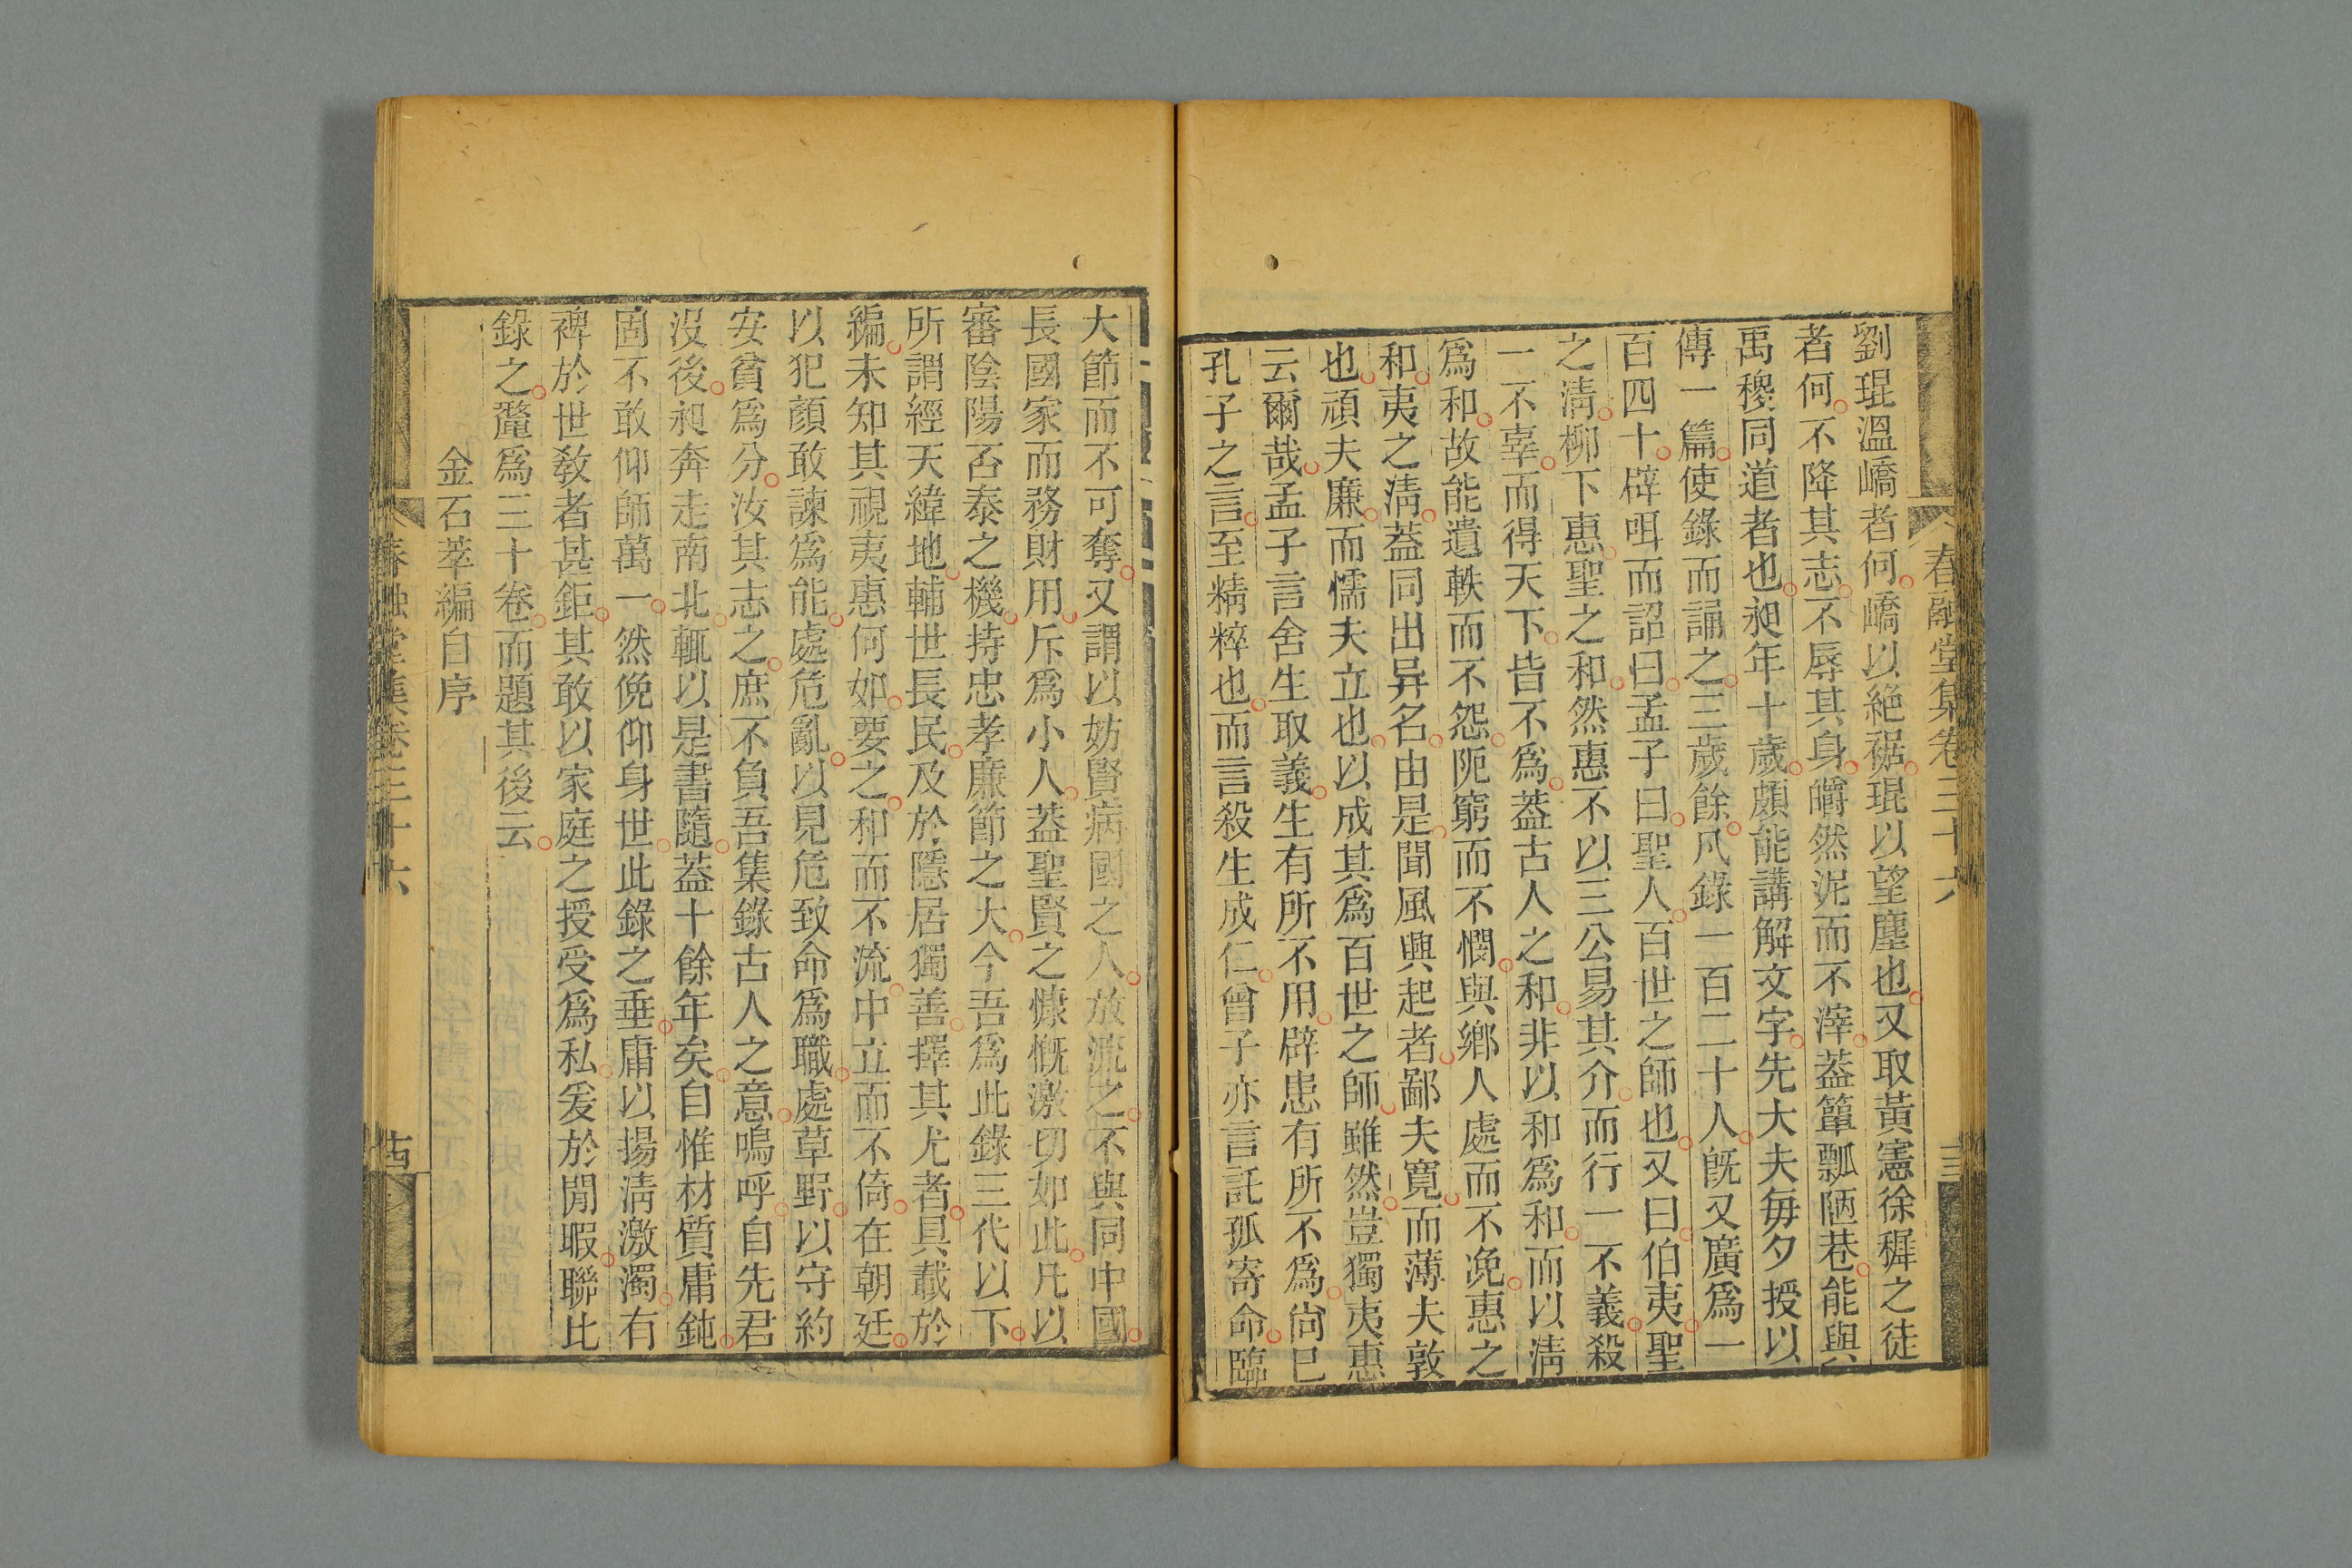 春融堂集卷三十六
劉琨溫嶠者何嶠以絕裾琨以望塵也又取黃憲徐穉之徒
者何不降其志不辱其身皭然泥而不滓葢簞瓢陋巷能與
禹稷同道者也昶年十歲頗能講解文字先大夫每夕授以
傳一篇使錄而誦之三歲餘凡錄一百二十人旣又廣爲一
百四十辟咡而詔曰孟子曰聖人百世之師也又曰伯夷聖
之淸柳下惠聖之和然惠不以三公易其介而行一不義殺
一不辜而得天下皆不爲葢古人之和非以和爲和而以淸
爲和故能遺軼而不怨阨窮而不憫與鄕人處而不浼惠之
和夷之淸葢同出异名由是聞風興起者鄙夫寬而薄夫敦
也頑夫廉而懦夫立也以成其爲百世之師雖然豈獨夷惠
云爾哉孟子言舍生取義生有所不用辟患有所不爲尙已
孔子之言至精粹也而言殺生成仁曾子亦言託孤寄命臨
大節而不可奪又謂以妨賢病國之人放流之不與同中國
長國家而務財用斥爲小人葢聖賢之慷慨激切如此凡以
審陰陽否泰之機持忠孝廉節之大今吾爲此錄三代以下
所謂經天緯地輔世長民及於隱居獨善擇其尤者具載於
編未知其視夷惠何如要之和而不流中立而不倚在朝廷
以犯顏敢諫爲能處危亂以見危致命爲職處草野以守約
安貧爲分汝其志之庶不負吾集錄古人之意嗚呼自先君
沒後昶奔走南北輒以是書隨葢十餘年矣自惟材質庸鈍
固不敢仰師萬一然俛仰身世此錄之垂庸以揚淸激濁有
裨於世敎者甚鉅其敢以家庭之授受爲私爰於閒暇聯比
錄之釐爲三十卷而題其後云
金石萃編自序
春融堂集卷三十六